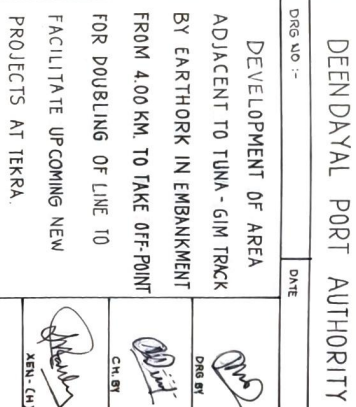 DEENDAYAL PORT AUTHORITY
DRG NO :-
DATE
DEVELOPMENT OF AREA
ADJACENT TO TUNA - GIM TRACK
BY EARTHORK IN EMBANKMENT
FROM 4.00 KM. TO TAKE OFF-POINT
FOR DOUBLING OF LINE TO
FACILITATE UPCOMING NEW
PROJECTS AT TEKRA.
DRG BY
CH. BY